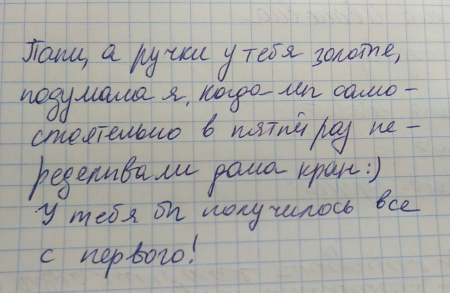 Папи, а ручки у тебя золотые,
подумала я, когда мы само-
стоятельно в пятый раз пе-
ределывали дома кран:)
У тебя бы получилось все
с первого!